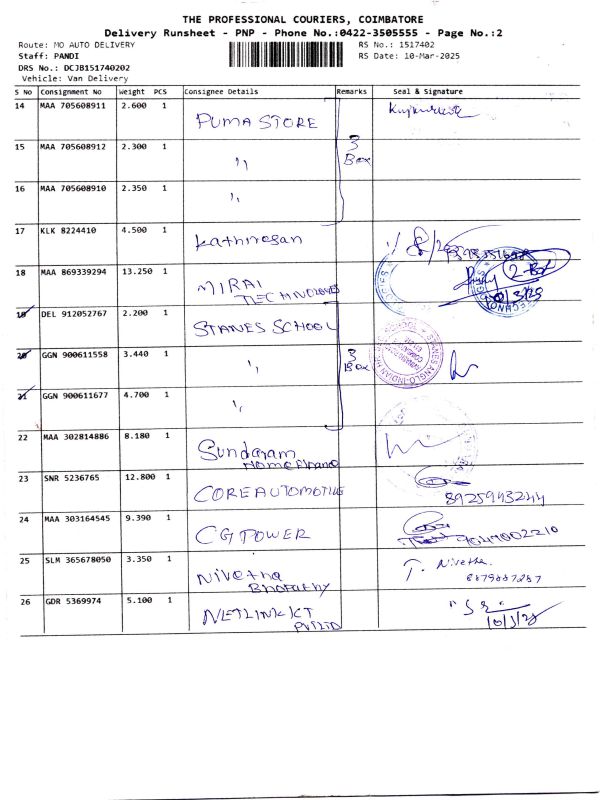 THE PROFESSIONAL COURIERS, COIMBATORE
Delivery Runsheet - PNP - Phone No.:0422-3505555 - Page No.:2
Route: MO AUTO DELIVERY RS No.: 1517402
Staff: PANDI RS Date: 10-Mar-2025
DRS No.: DCJB151740202
Vehicle: Van Delivery
S No Consignment No Weight PCS Consignee Details Remarks Seal & Signature
14 MAA 705608911 2.600 1 PUMA STORE
15 MAA 705608912 2.300 1 " 3 Box
16 MAA 705608910 2.350 1 "
17 KLK 8224410 4.500 1 Kathiresan
18 MAA 869339294 13.250 1 MIRAI TECHNOLOGIES 2-Box
19 DEL 912052767 2.200 1 STANES SCHOOL
20 GGN 900611558 3.440 1 " 3 Box
21 GGN 900611677 4.700 1 "
22 MAA 302814886 8.180 1 Sundaram Home Finance
23 SNR 5236765 12.800 1 CORE AUTOMOTIVE 8925943244
24 MAA 303164545 9.390 1 CG POWER
25 SLM 365678050 3.350 1 Nivetha T. Nivetha
26 GDR 5369974 5.100 1 NETLINK ICT PVT LTD 10/3/25